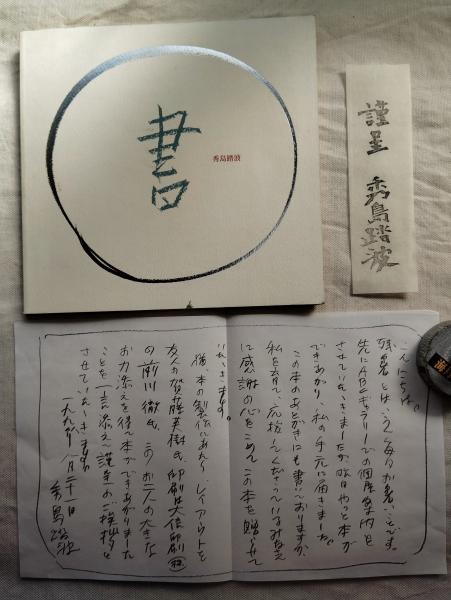 書
秀島踏波
謹呈 秀島踏波
こんにちは。
残暑とはいえ毎日が暑いことです。
先にABCギャラリーでの個展案内を
させていただきましたが、昨日やっと本が
できあがり、私の手元に届きました。
この本のあとがきにも書いておりますが、
私を育て、応援してくださっているみなさん
に感謝の心をこめてこの本を贈らせて
いただきます。
本の製作にあたり レイアウトを
友人の 英樹氏、印刷は大伸印刷㈱
の前川 徹氏、このお二人の大きな
お力添えを得、本ができあがりました
ことを一言添え謹呈のご挨拶と
させていただきます。
八月二十一日
秀島踏波